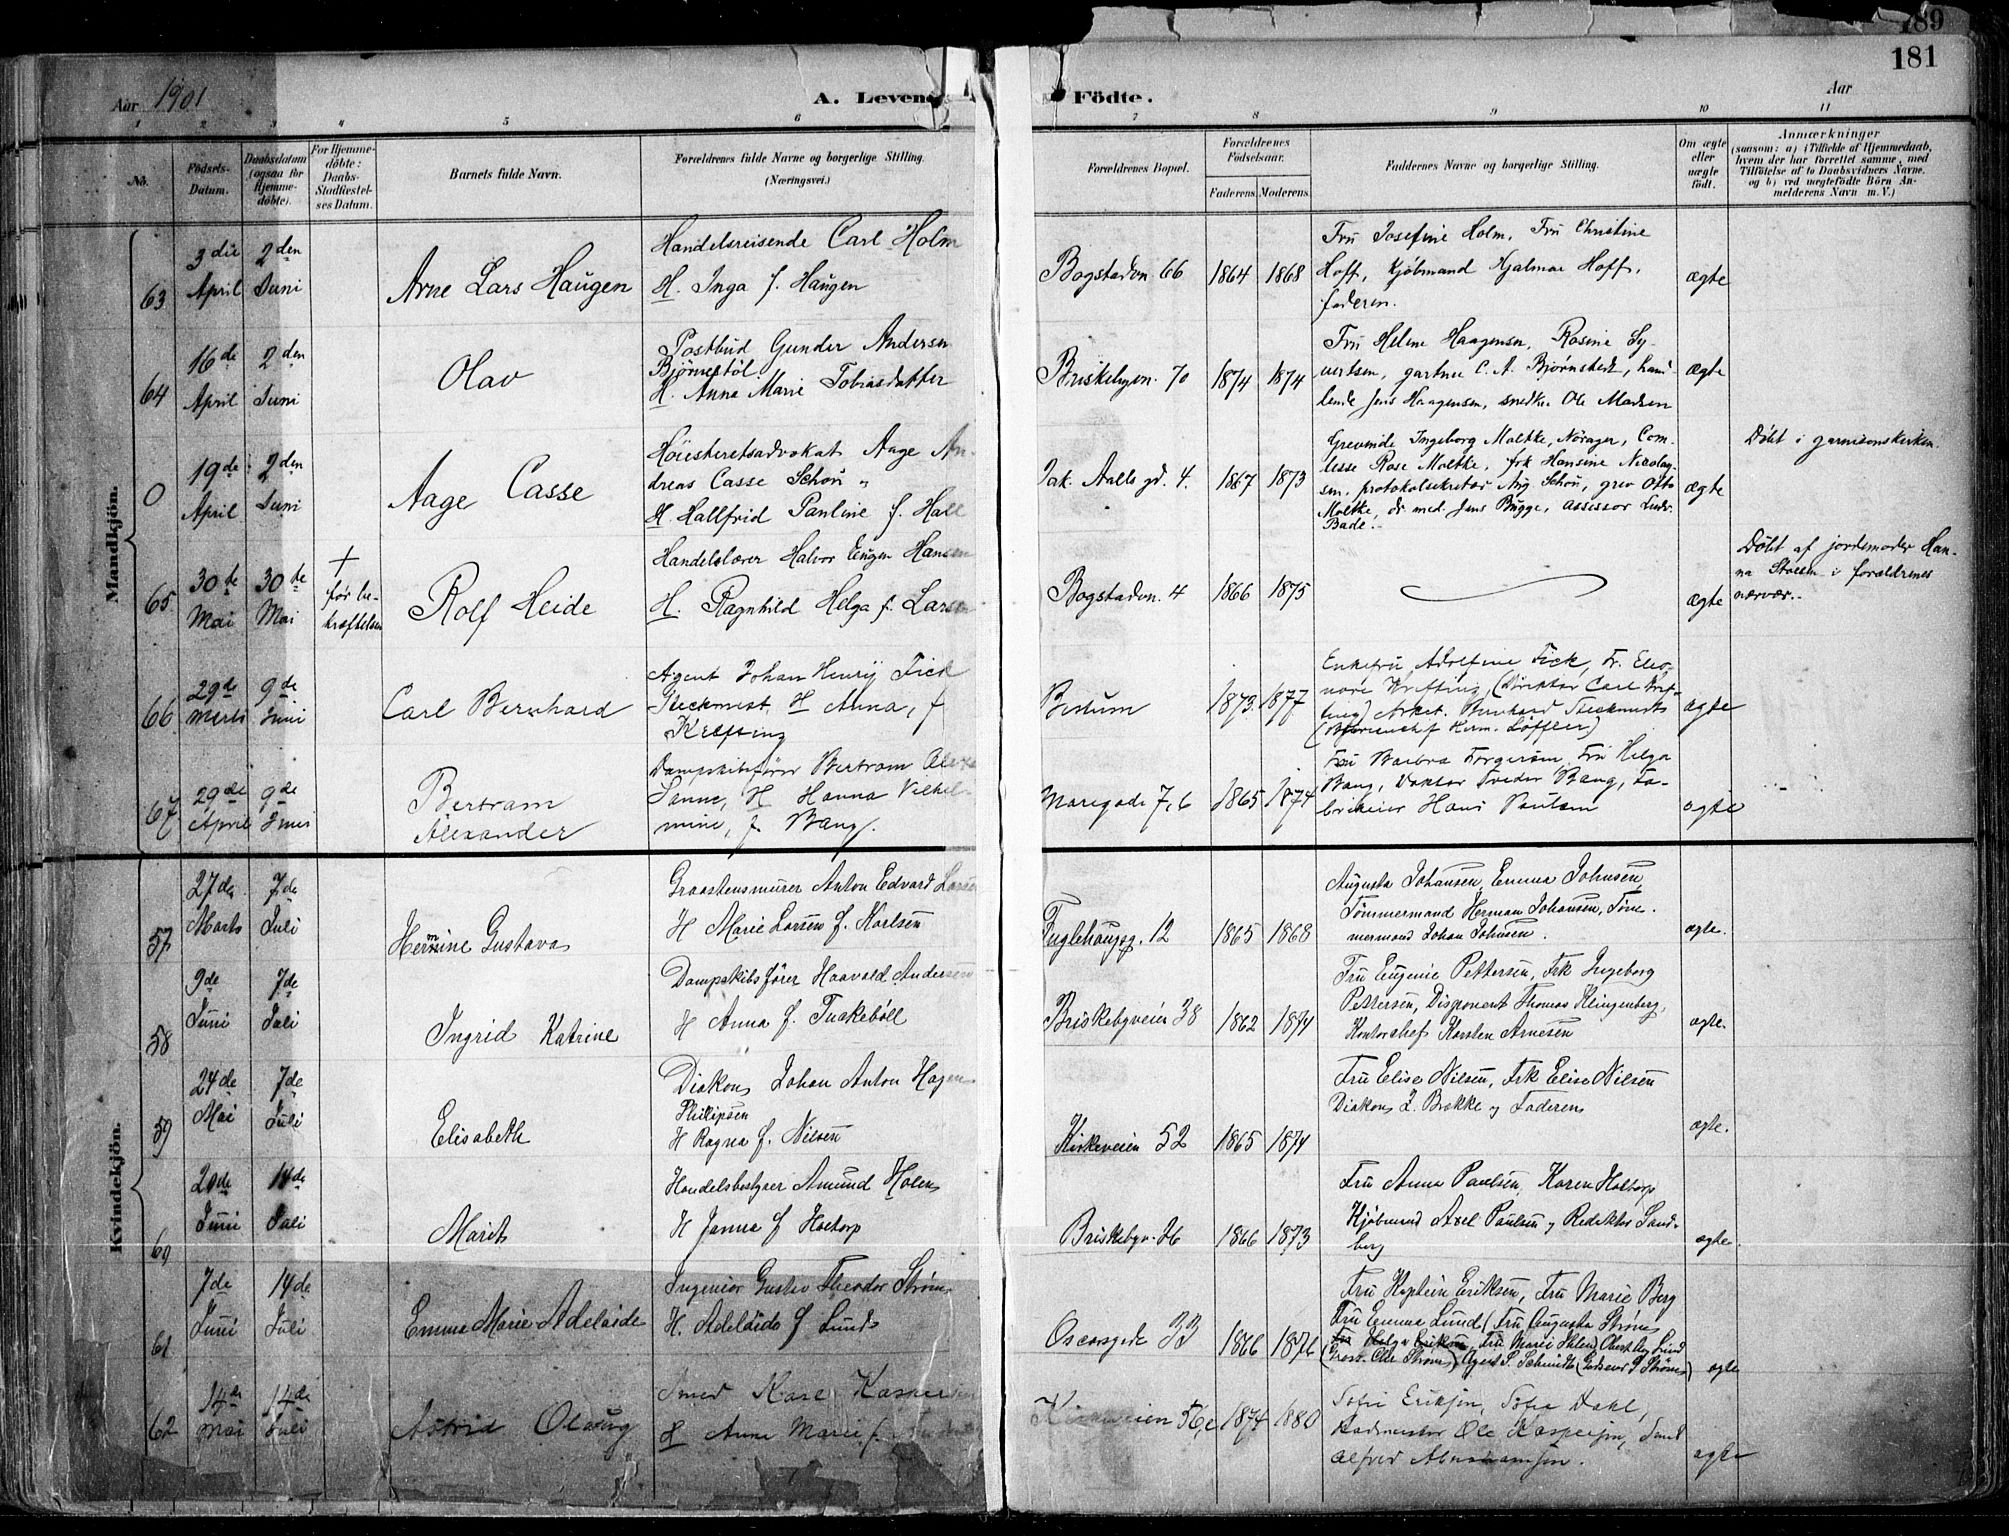 189
181
Aar 1901
A. Levende
Födte.
Aar
1 2 3 4 5 6 7 8 9 10 11
No.
Födsels-Datum.
Daabsdatum (ogsaa for Hjemme-döbte).
For Hjemme-döbte: Daabs-Stadfæstel-ses Datum.
Barnets fulde Navn.
Forældrenes fulde Navne og borgerlige Stilling.
(Næringsvei.)
Forældrenes Bopæl.
Forældrenes Födselsaar.
Faderens. Moderens.
Faddernes Navne og borgerlige Stilling.
Om ægte eller uægte födt.
Anmærkninger
(saasom: a) i Tilfælde af Hjemmedaab,
hvem der har forrettet samme, med
Tilföielse af to Daabsvidners Navne,
og b) ved uægtefödte Börn An-
melderens Navn m. V.)
Mandkjön.
63
3die April
2den Juni
Arne Lars Haugen
Handelsreisende Carl Holm
H. Inga f. Haugen
Bogstadvn 66
1864 1868
Fru Josefine Holm, Fru Christine
Hoff, Kjøbmand Hjalmar Hoff,
faderen.
ægte
64
16de April
2den Juni
Olav
Postbud Gunder Andersen
Bjørnestöl
H. Anna Marie Tobiasdatter
Briskebyvn. 70
1874 1874
Fru Helene Haagensen, Rosine Sy-
vertsen, gartner C. A. Bjørnstedt, hand-
lende Jens Haagensen, snedker Ole Madsen
ægte
0
19de April
2den Juni
Aage Casse
Høiesteretsadvokat Aage An-
dreas Casse Schou
H. Hallfrid Pauline f. Hall
Jak. Aalls gd. 4.
1867 1873
Grevinde Ingeborg Moltke, Nörager, Com-
tesse Rose Moltke, frk Hansine Nicolay-
sen, protokolsekretær Aug Schou, grev Otto
Moltke, dr med. Jens Bugge, assessor
Bade.
ægte
Døbt i garnisonskirken.
65
30te Mai
30te Mai
+ før be-
kræftelsen
Rolf Heide
Handelslærer Halvor Eugen Hansen
H. Ragnhild Helga f. Larsen
Bogstadvn. 4
1866 1875
ægte
Døbt af jordemoder Han-
na Stoesen i forældrenes
nærvær.
66
29de Marts
9de Juni
Carl Bernhard
Agent Johan Henrij Fick
Steckmest H Anna, f
Krefting
Bestum
1873 1877
Enkefru Adolfine Fick, Fr. Eleo-
nore Krefting, (Direktør Carl Kref-
ting) Arkit. Bernhard Steckmest
Herm. Løffler)
ægte
67
29de April
9de Juni
Bertram
Alexander
Dampskibsfører Bertram Alexa
Sanne, H Hanna Vilhel-
mine, f. Bang.
Maregade 7, 6
1865 1874
Fru Barbra Torgersen, Fru Helga
Bang, Doktor Fredr Bang, Fa-
brikeier Hans Poulsen
ægte
Kvindekjön.
57
27de Marts
7de Juli
Hermine Gustava
Graastensmurer Anton Edvard Larsen
H Marie Larsen f. Karlsen
Fuglehaugsg. 12
1865 1868
Augusta Johansen, Emma Johnsen,
Tømmermand Herman Johansen, Tøm-
mermand Johan Johnsen.
ægte.
58
9de Juni
7de Juli
Ingrid Katrine
Dampskibsfører Haavald Andersen
H Anna f. Tuckeböll
Briskebyveien 38
1862 1874
Fru Eugenie Pettersen, Frk Ingeborg
Pettersen, Disponent Thomas Klingenberg,
Kontorchef Karsten Arnesen
ægte.
59
24de Mai
7de Juli
Elisabeth
Diakon Johan Anton Hagen
Phillipsen
H Ragna f. Nilsen
Kirkeveien 52
1865 1874
Fru Elise Nilsen, Frk Elise Nilsen
Diakon J. Brække og Faderen
ægte.
60
20de Juni
14de Juli
Marit
Handelsbestyrer Amund Holen
H Janna f Holtorp
Briskebyv. 26
1866 1873
Fru Anna Paulsen, Karen Holtorp
Kjøbmand Axel Paulsen og Redaktør Sand-
berg
ægte.
61
7de Juni
14de Juli
Emma Marie Adelaide
Ingeniør Gustav Theodor Strøm
H. Adelaide f Lund
Oscarsgade 33
1866 1876
Fru Kaptein Eriksen, Fru Marie Berg
Fru Emma Lund (Fru Augusta Strøm
Fru Helga Eriksen, Fru Marie Ihlen) Oberst Lund
Chr Strøm) Agent P. Schmidt (Godseier P Strøm)
ægte
62
14de Mai
14de Juli
Astrid Olaug
Smed Karl Kaspersen
H Anna Marie f.
Kirkeveien 56, c
1874 1880
Sofie Eriksen, Sofie Dahl,
Ole Kaspersen, Smed
Alfred Abrahamsen.
ægte